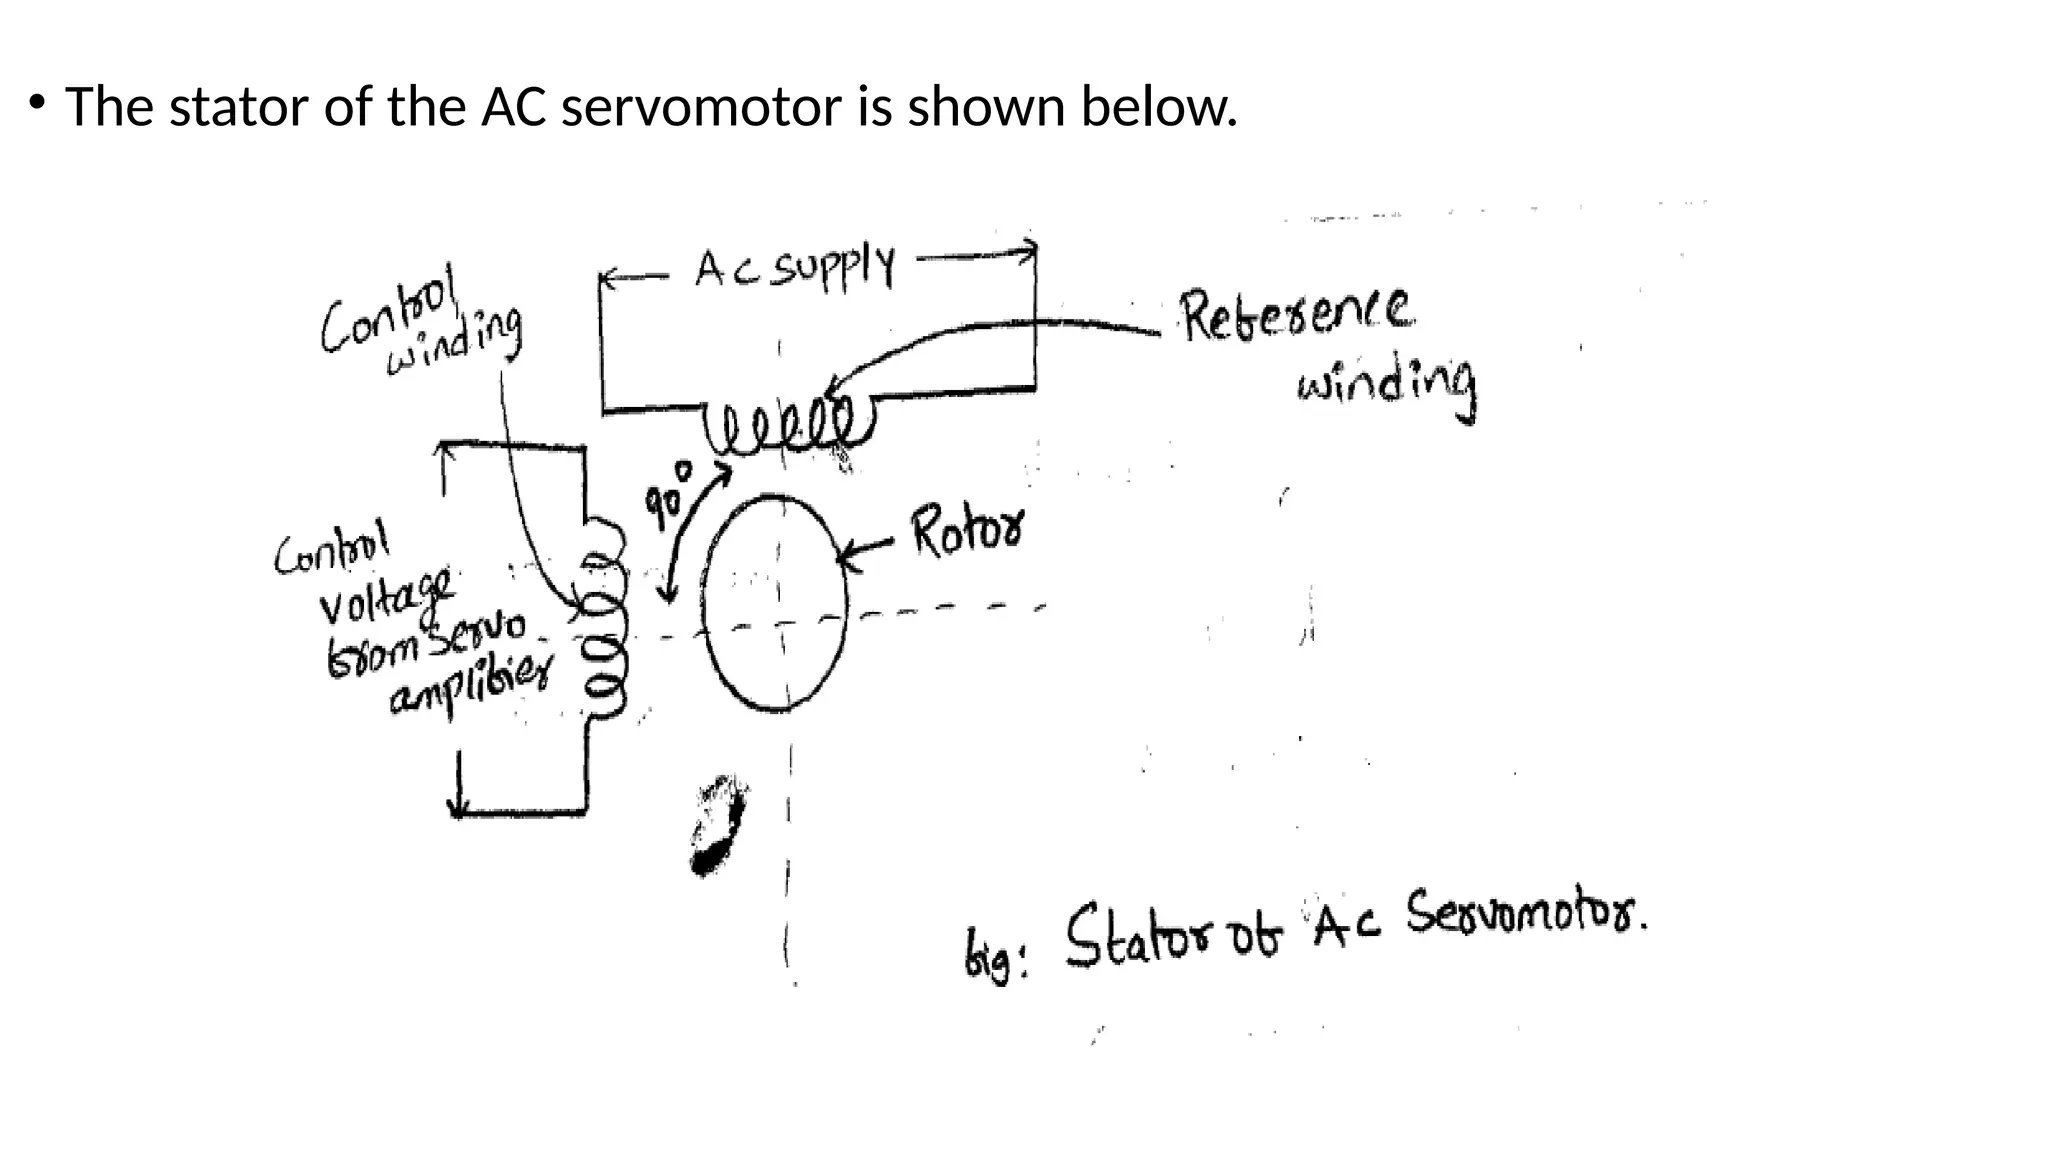 • The stator of the AC servomotor is shown below.
AC supply
Control
winding
Reference
winding
90°
Rotor
Control
voltage
from servo
amplifier
fig: Stator of AC Servomotor.